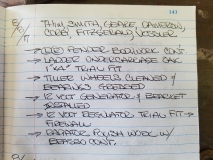 143
TIM, SMITH, GEARE, CAMERON,
COREY, FITZGERALD, VOSSLER
→ FENDER BODYWORK CONT.
→ LADDER UNDERCARRIAGE
TRIAL FIT
→ TILLER WHEELS CLEANED &
BEARINGS GREASED
→ 12 VOLT GENERATOR & BRACKET
INSTALLED
→ 12 VOLT REGULATOR TRIAL FIT →
FIREWALL
→ RADIATOR WORK W/
CONT.